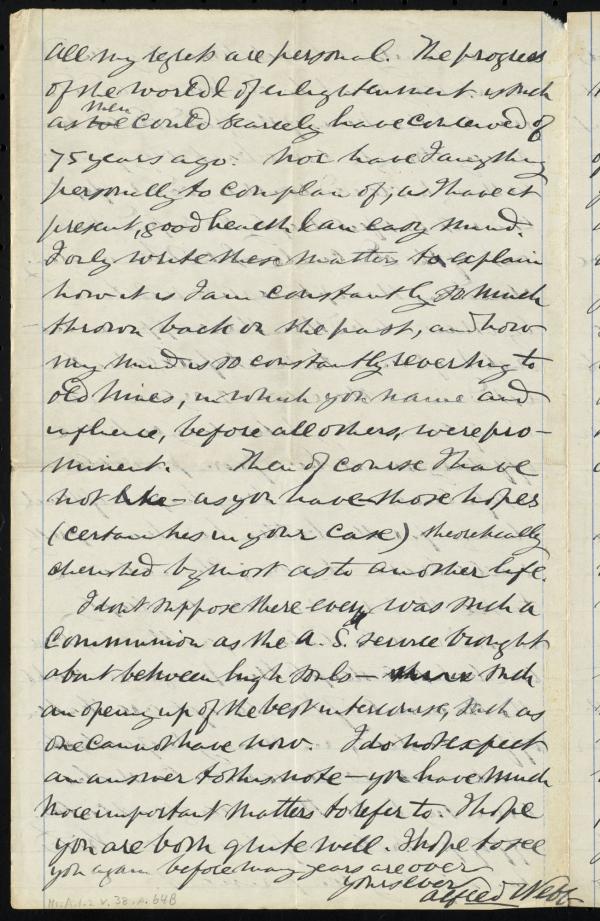 all my regrets are personal. The progress
of the world & of enlightenment is such
men
as we could scarcely have conceived of
75 years ago. Nor have I anything
personally to complain of, as I have at
present, good health & an easy mind.
I only write these matters to explain
how it is I am constantly so much
thrown back on the past, and how
my mind is so constantly reverting to
old times, in which your name and
influence, before all others, were pro-
minent. Then of course I have
not like - as you have those hopes
(certainties in your case) theoretically
cherished by most as to another life.
I dont suppose there ever was such a
Communion as the A. S. service brought
about between high souls — such
an opening up of the best intercourse, such as
one cannot have now. I do not expect
an answer to this note — you have much
more important matters to refer to. I hope
you are both quite well. I hope to see
you again before many years are over
yours ever
Alfred Webb
Ms.A.1.2 v.38. p.64B